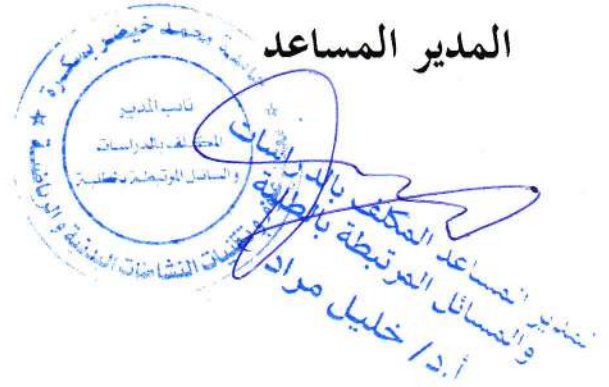 المدير المساعد
جامعة محمد خيضر بسكرة
نائب المدير
المكلف بالدراسات
والمسائل المرتبطة بالطلبة
تقنيات النشاطات البدنية والرياضية
المدير المساعد المكلف بالدراسات
والمسائل المرتبطة بالطلبة
أ.د/ خليل مراد